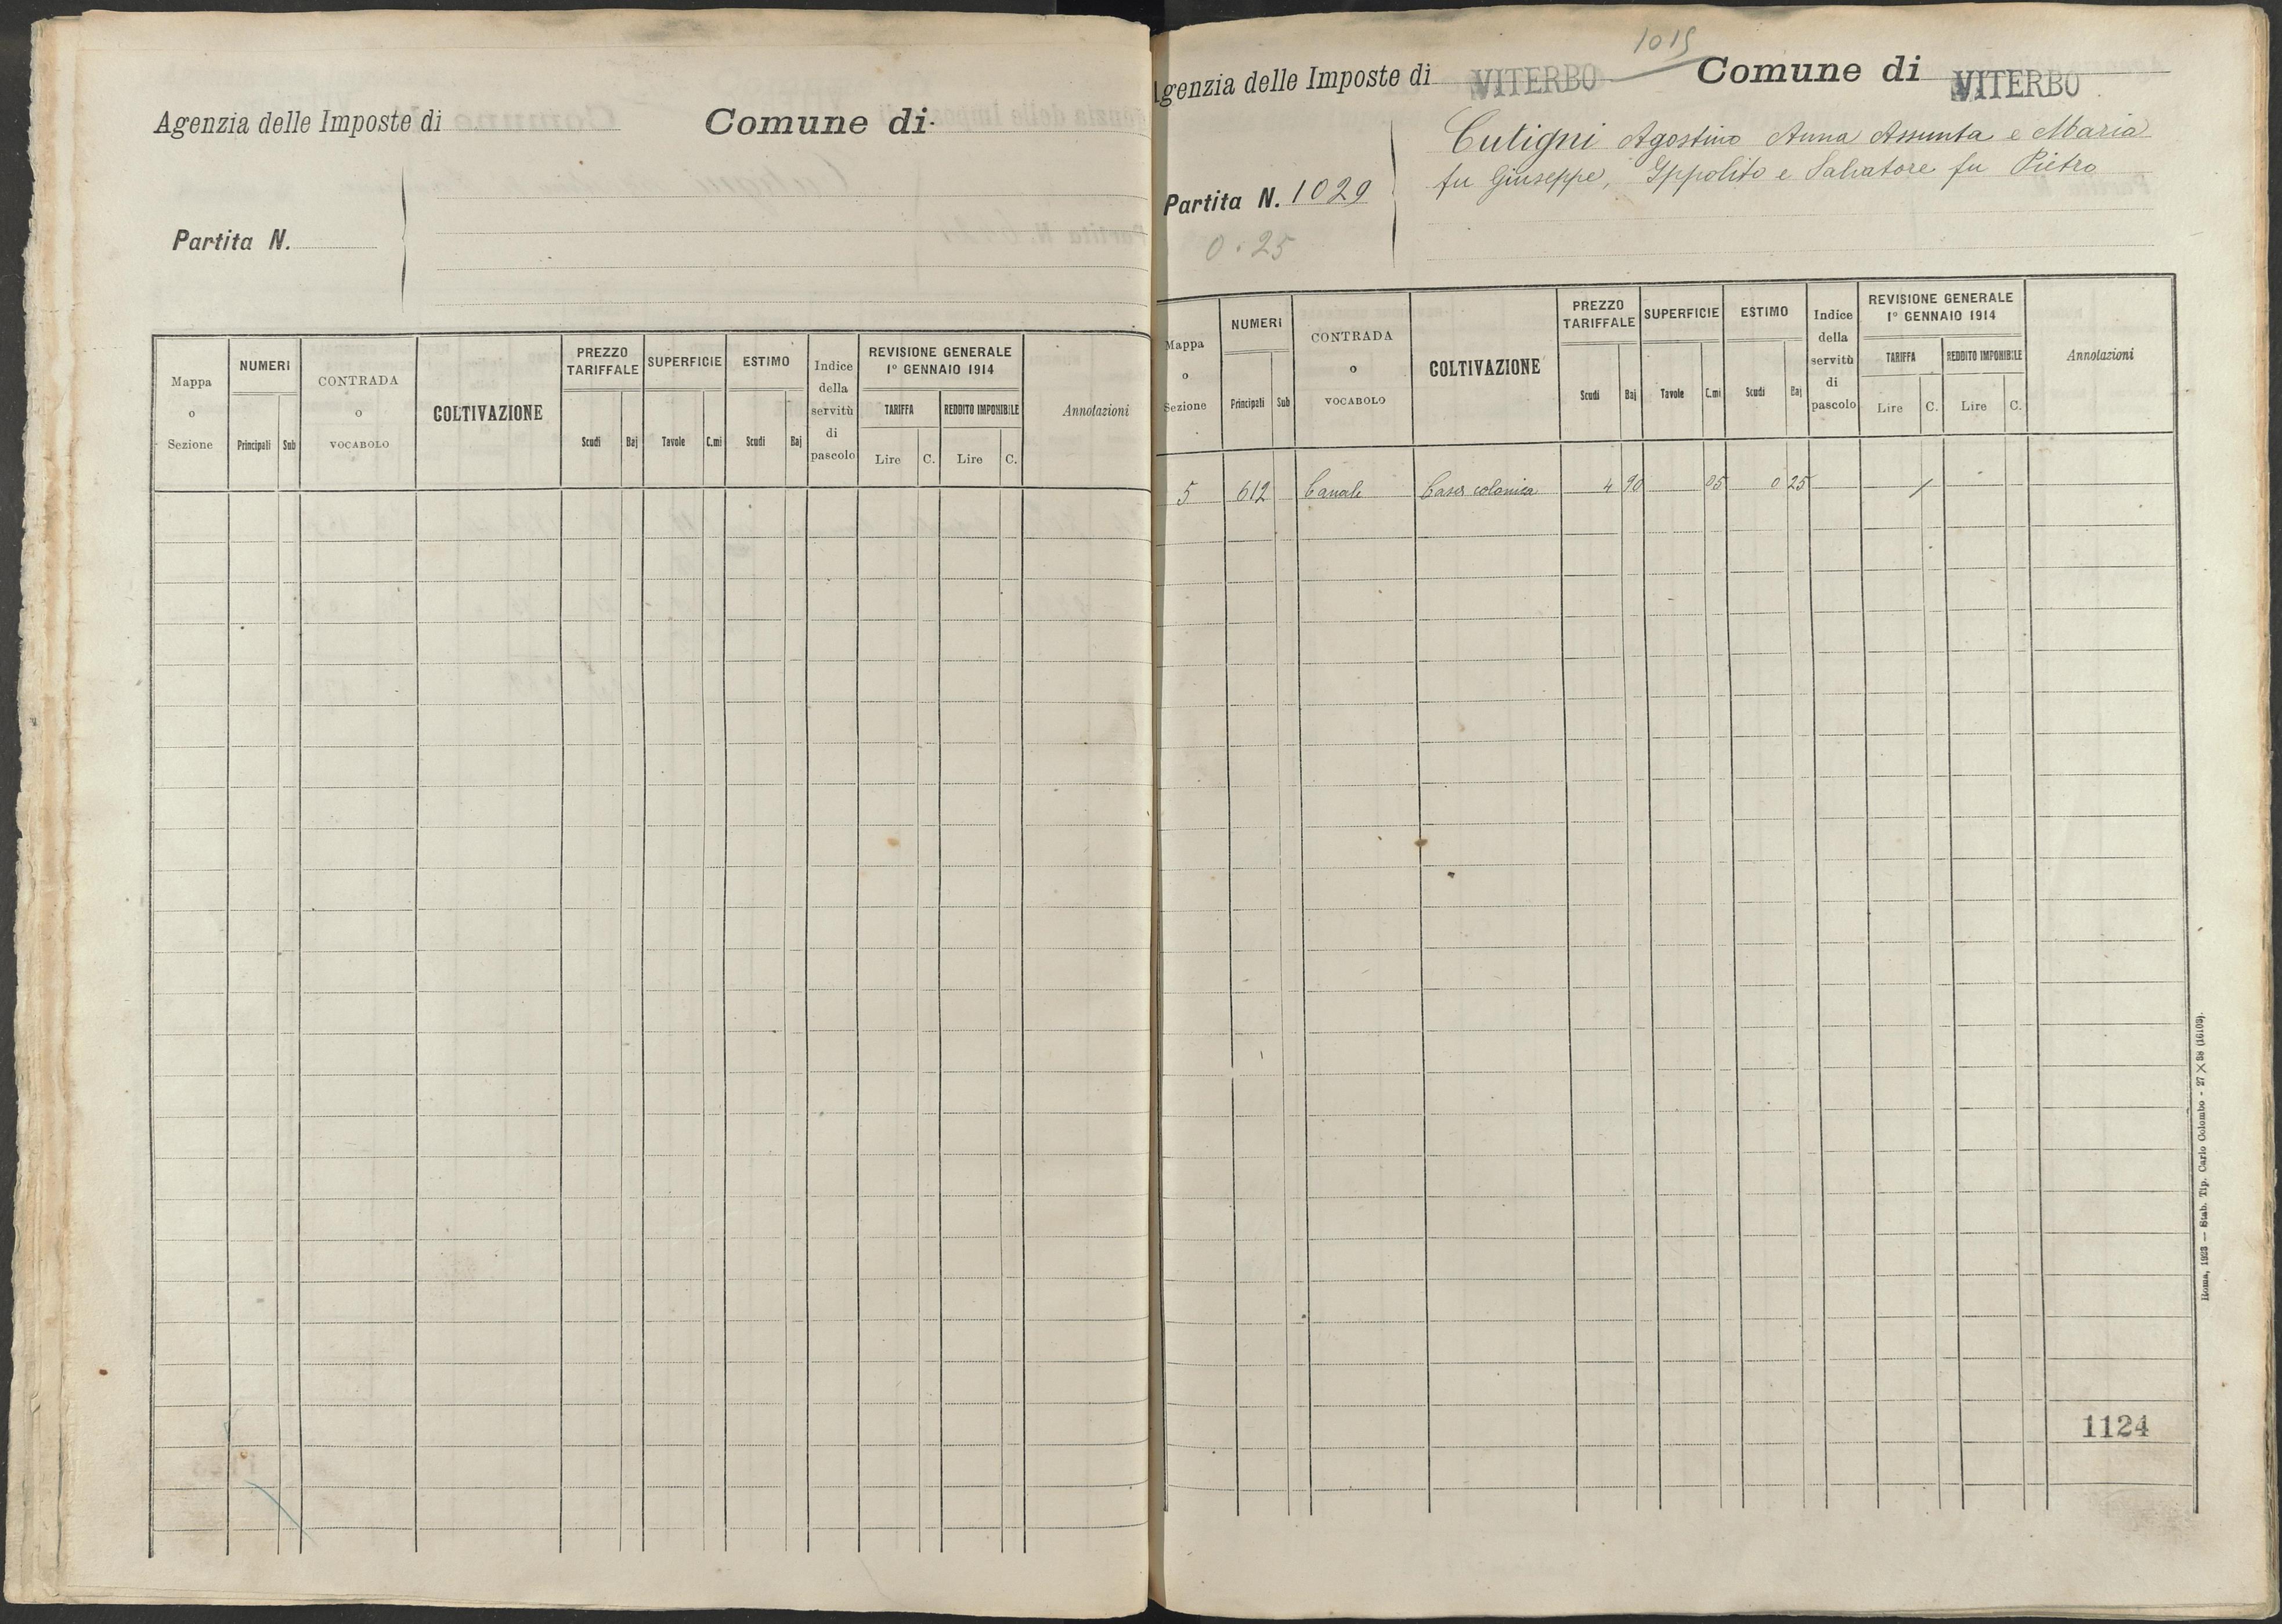 Agenzia delle Imposte di
Comune di
Partita N.
Mappa o Sezione
NUMERI
Principali Sub
CONTRADA o VOCABOLO
COLTIVAZIONE
PREZZO TARIFFALE
Scudi Baj
SUPERFICIE
Tavole C.mi
ESTIMO
Scudi Baj
Indice della servitù di pascolo
REVISIONE GENERALE
1° GENNAIO 1914
TARIFFA
Lire C.
REDDITO IMPONIBILE
Lire C.
Annotazioni
1015
Agenzia delle Imposte di VITERBO
Comune di VITERBO
Cutigni Agostino Anna Assunta e Maria
fu Giuseppe, Ippolito e Salvatore fu Pietro
Partita N. 1029
0.25
Mappa o Sezione
NUMERI
Principali Sub
CONTRADA o VOCABOLO
COLTIVAZIONE
PREZZO TARIFFALE
Scudi Baj
SUPERFICIE
Tavole C.mi
ESTIMO
Scudi Baj
Indice della servitù di pascolo
REVISIONE GENERALE
1° GENNAIO 1914
TARIFFA
Lire C.
REDDITO IMPONIBILE
Lire C.
Annotazioni
5 612 Canale Casa colonica 4 90 05 0 25 /
1124
Roma, 1923 — Stab. Tip. Carlo Colombo - 27 X 38 (16103).